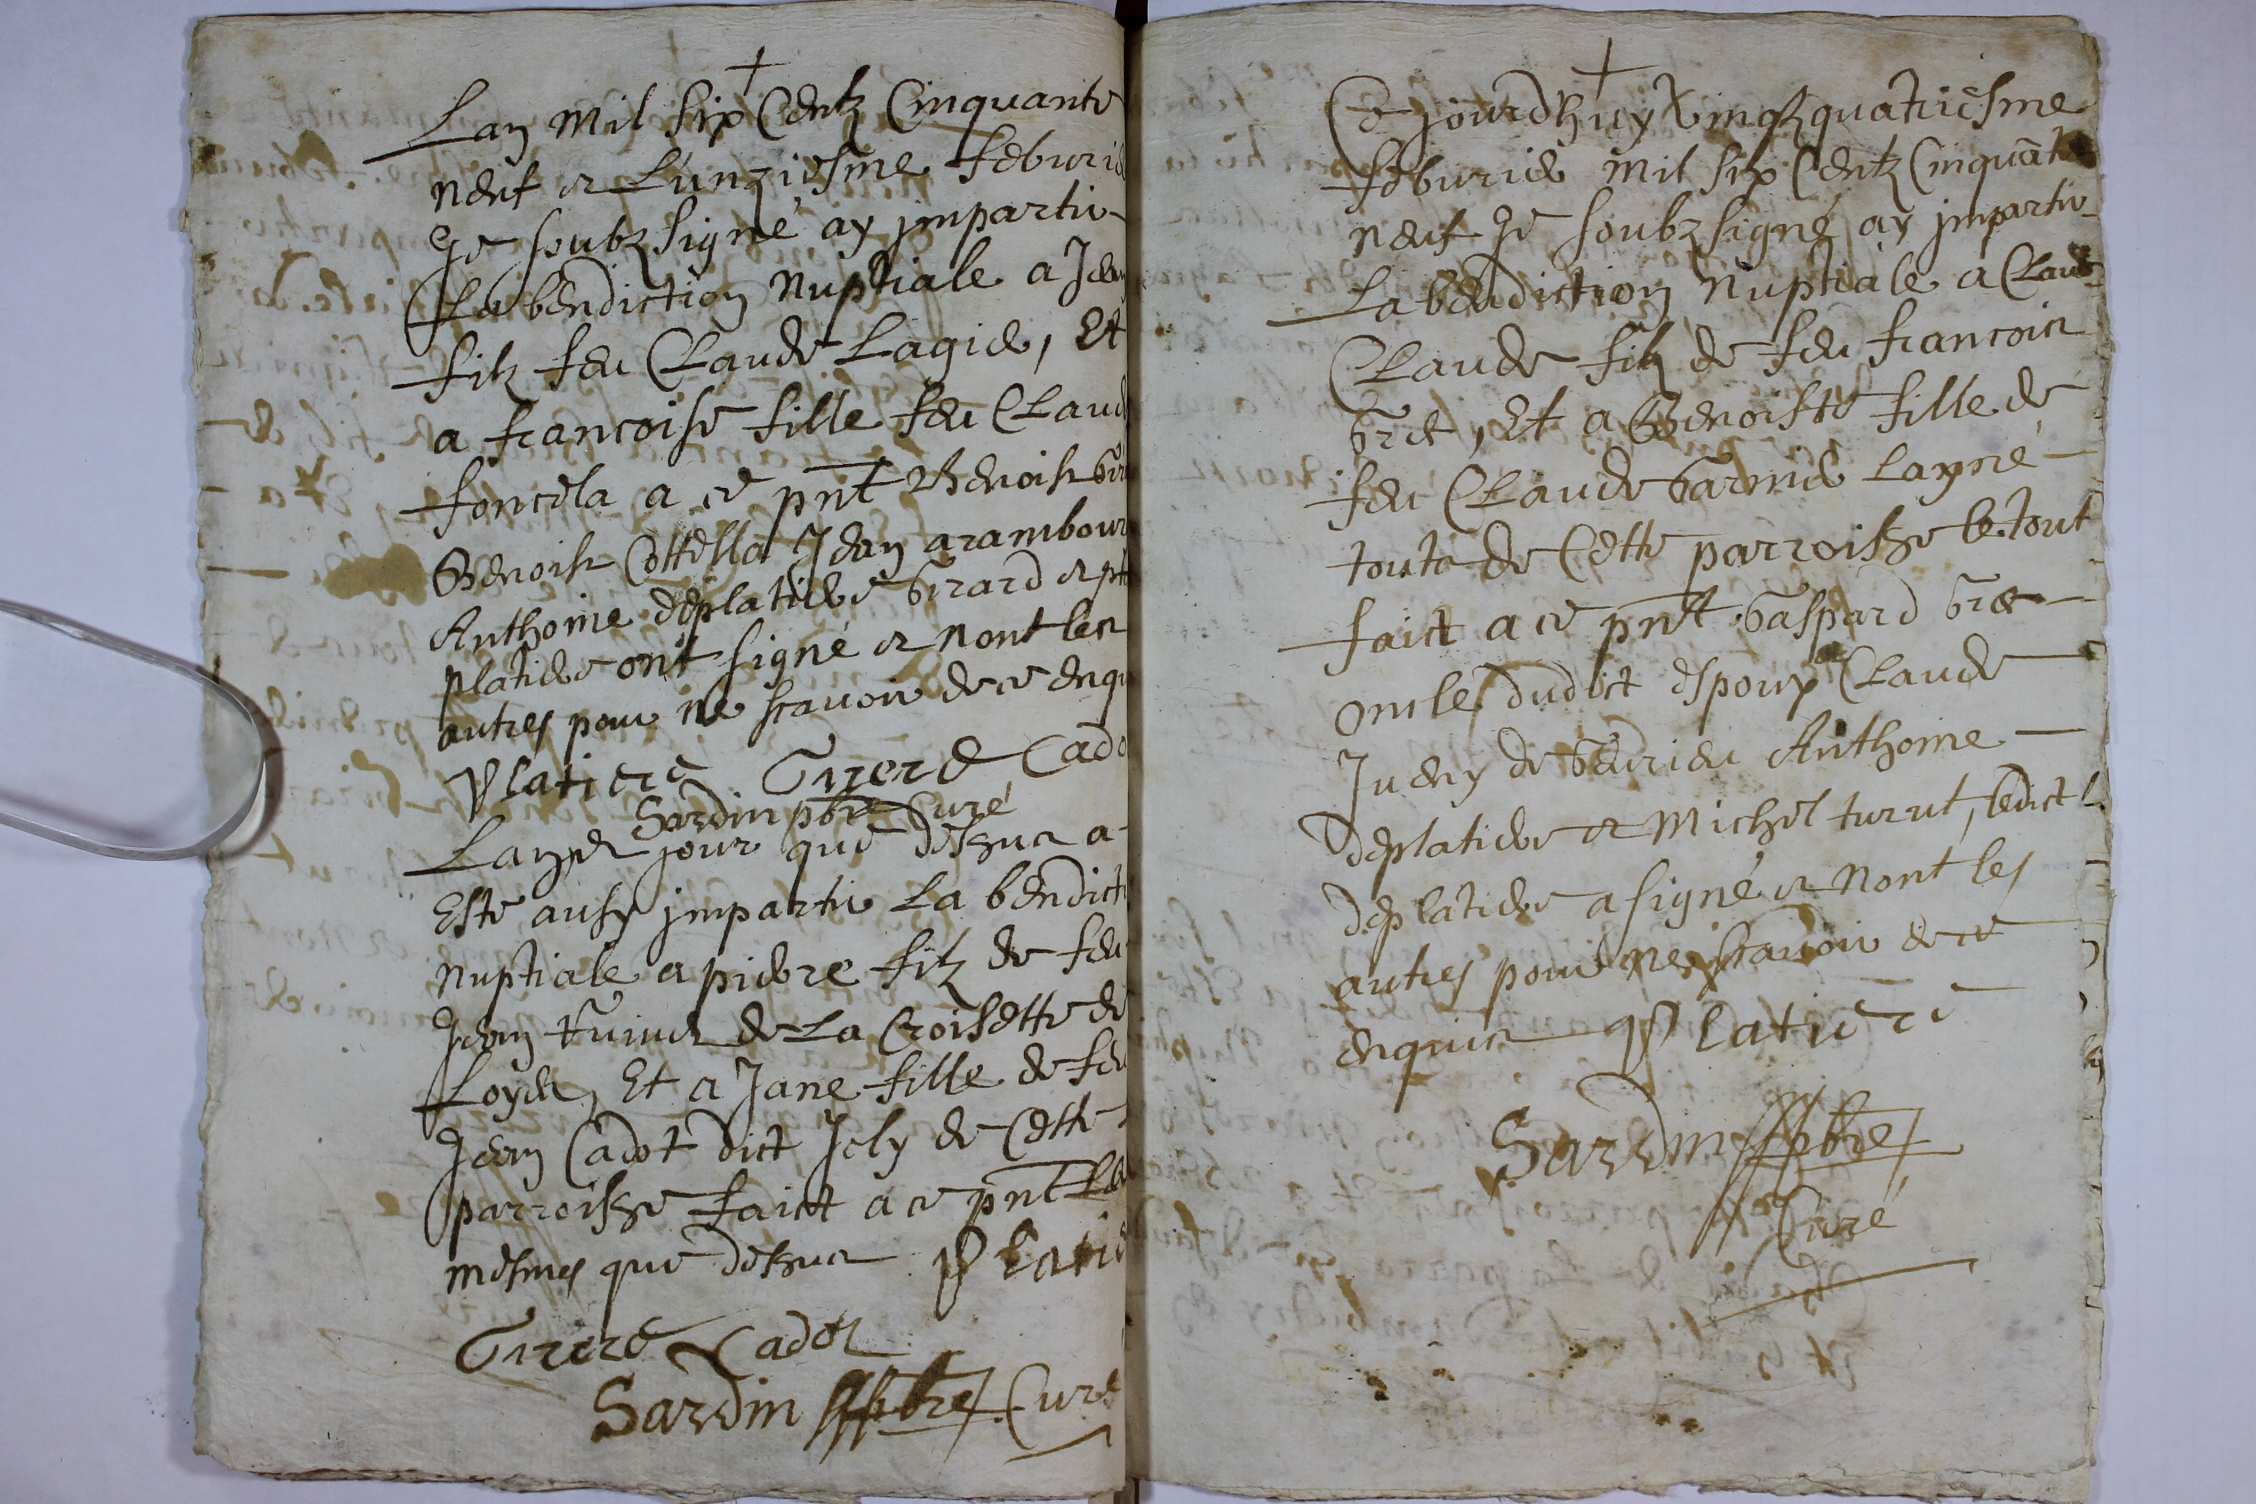 Lan mil six Centz Cinquante
neuf & Lunziesme feburie
Je soubzsigné ay jmpartir
La bendiction nuptiale a Jean
filz feu Claude Lagier, Et
a francoise fille feu Claud
foncela a ce pnt Benoist
Benoist Cottella Jean arambour
Anthoine deplatiere Girard &
platiere ont signé & nont les
autres pour ne scauoir de ce enqu
Platiere Girerd Cado
Sardin pbre Curé
Lan & jour que dessus a
Esté ausy jmpartir La bendicti
nuptiale a pierre filz de feu
Jean de La Croisette de
Loyes, Et a Jane fille de feu
Jean Cadot dict Joly de Cette
parroisse faict a ce pnt Les
mesmes que dessus Platie
Girerd Cadot
Sardin pbre Curé
Ce jourdhuy Vingtquatriesme
feburier mil six Centz Cinquate
neuf Je soubzsigné ay jmpartir
La bendiction nuptiale a Claude
Claude filz de feu francois
Gret, Et a Benoiste fille de
feu Claude Garnier Layné
touts de Cette parroisse Le tout
faict a ce pnt Gaspard Gret
oncle dudict espoux Claude
Jueny de Anthoine
deplatiere & Michel turut, ledict
deplatiere a signé & nont les
autres pour ne scauoir de ce
enquis Platiere
Sardin pbre
Curé